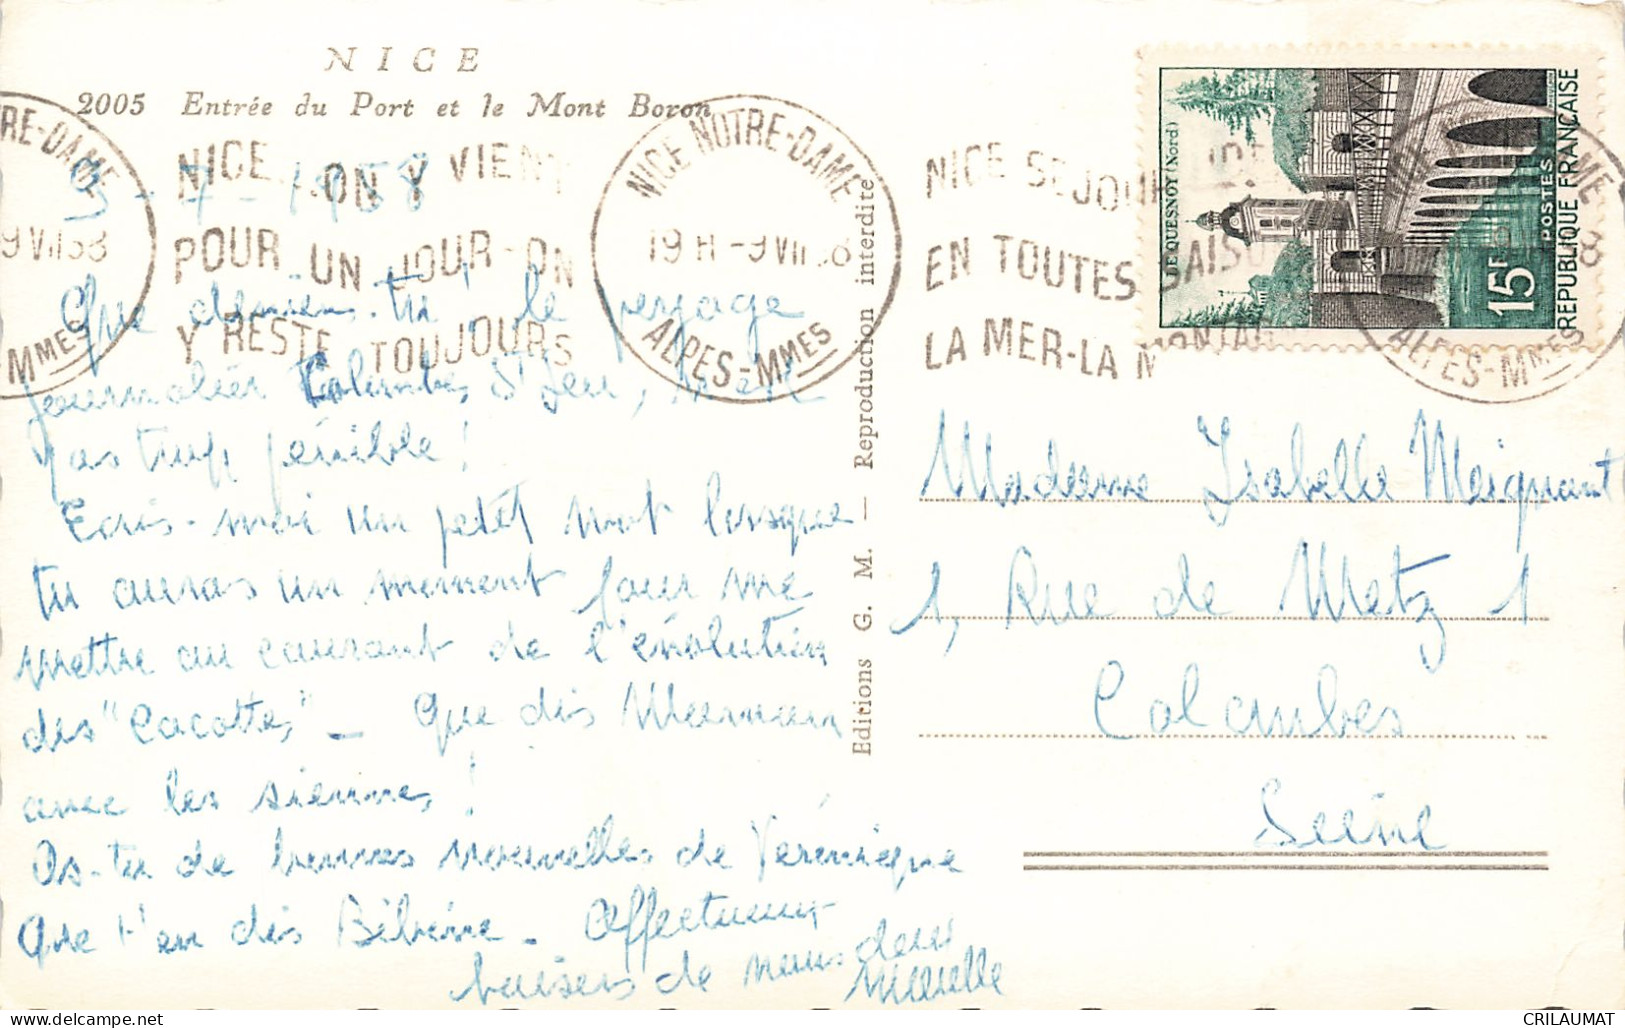 NICE
2005 Entrée du Port et le Mont Boron
9-7-1958
NICE...ON Y VIENT
POUR UN JOUR-ON
Y RESTE TOUJOURS
RE-DAME
9 VII 58
-Mmes
NICE NOTRE-DAME
19 H -9 VII 58
ALPES-Mmes
Que deviens-tu, le
journalier Colombes
pas trop pénible !
Ecris-moi un petit mot lorsque
tu auras un moment pour me
mettre au courant de l'évolution
des "Cacottes" - Que dis Maman
avec les siennes !
As-tu de bonnes nouvelles de Véronique
Que t'en dis Bibine - Affectueux
baisers de nous deux
Editions G. M. — Reproduction interdite
NICE SEJOUR
EN TOUTES SAISO
LA MER-LA MONTAG
LE QUESNOY (Nord)
POSTES
15F
REPUBLIQUE FRANÇAISE
ALPES-Mmes
Madame Isabelle Meignant
1, Rue de Metz 1
Colombes
Seine
CRILAUMAT